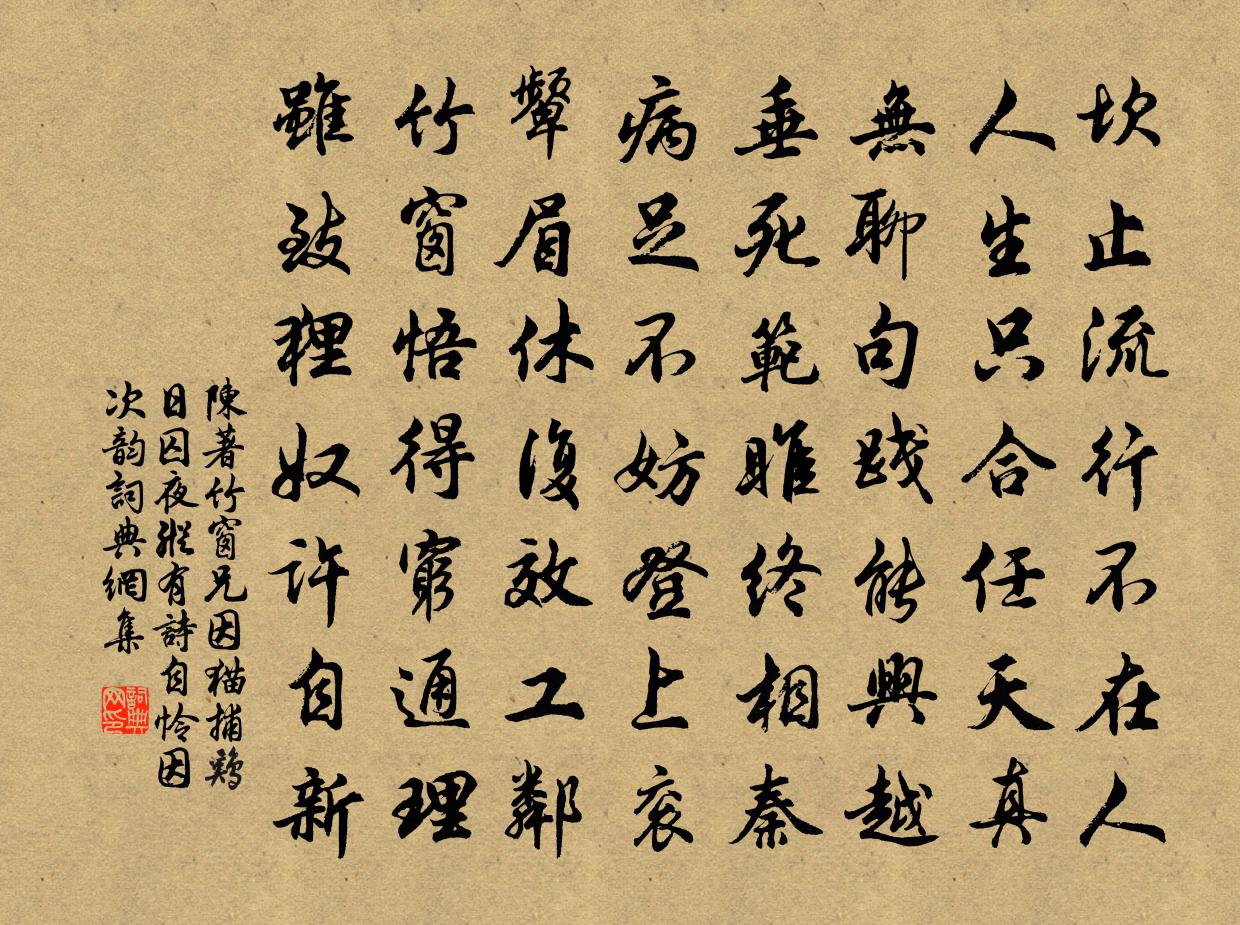 坎止流行不在人
人生只合任天真
無聊句踐能興越
垂死範雎終相秦
病足不妨登上衮
顰眉休復效工鄰
竹窗悟得窮通理
雖致狸奴許自新
陳著竹窗兄因猫捕鷄
日囚夜縱有詩自怜因
次韵詞典網集
詞典网印